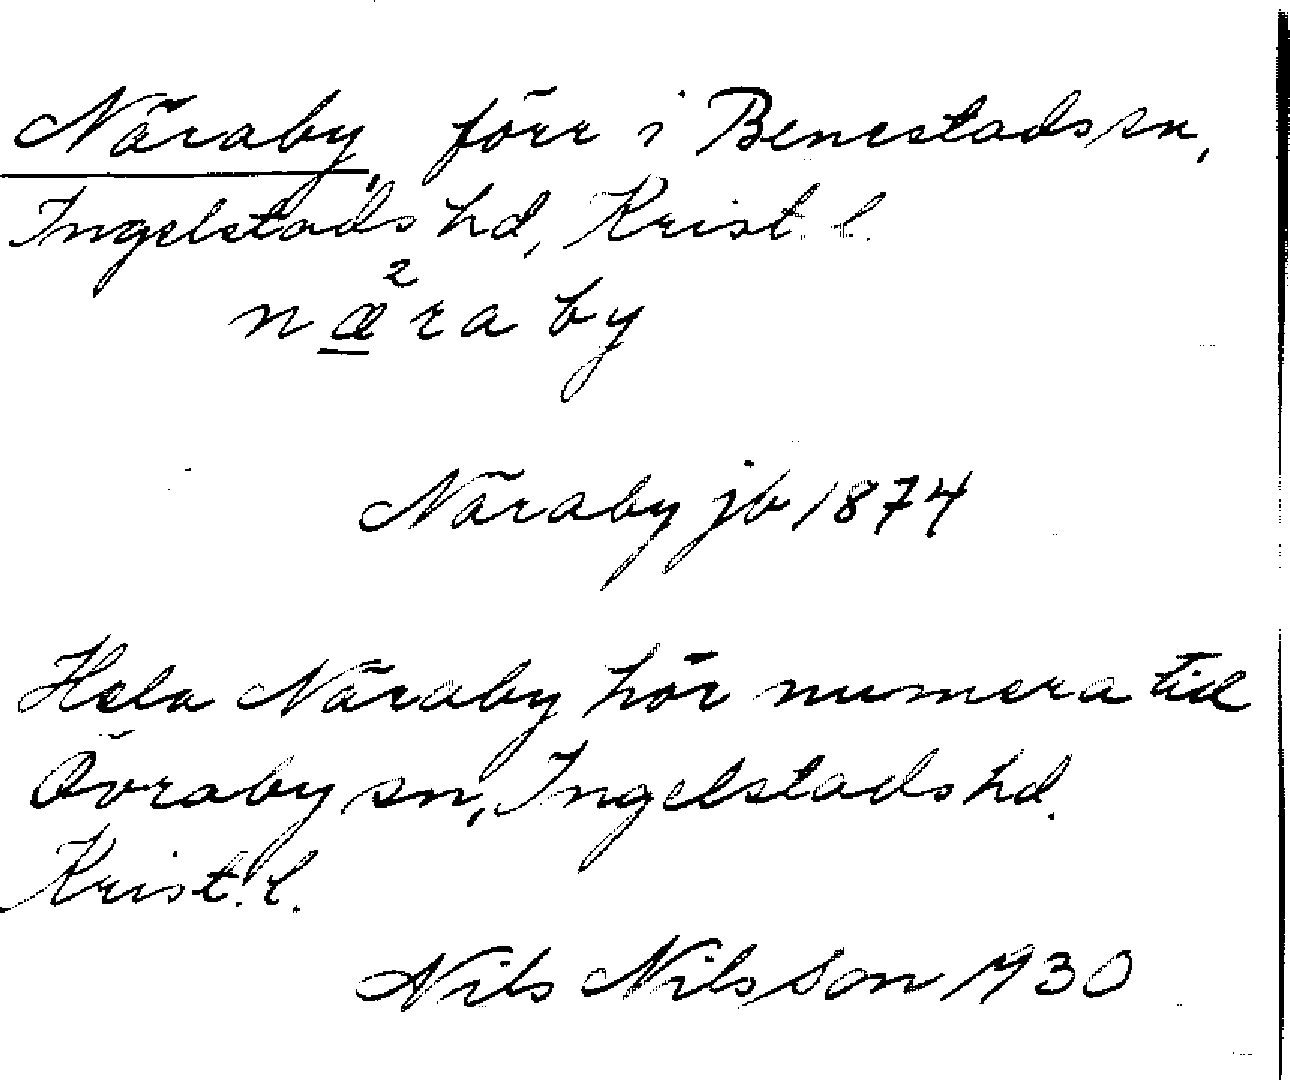 Näraby, förr i Benestads sn,
Ingelstads hd, Krist. l.
næ²raby
Näraby jb 1874
Hela Näraby hör numera till
Övraby sn, Ingelstads hd.
Krist. l.
Nils Nilsson 1930